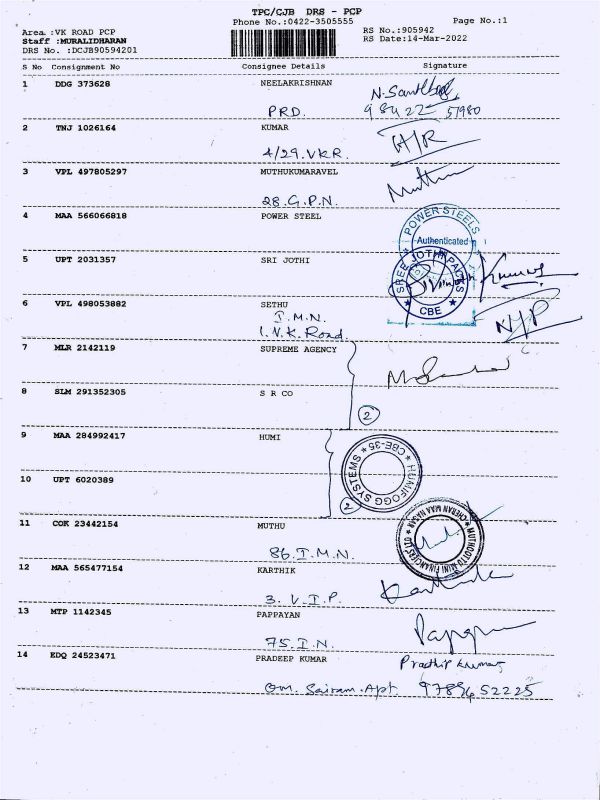 TPC/CJB DRS - PCP
Phone No.:0422-3505555
Page No.:1
Area :VK ROAD PCP
Staff :MURALIDHARAN
DRS No. :DCJB90594201
RS No.:905942
RS Date:14-Mar-2022
S No Consignment No Consignee Details Signature
1 DDG 373628 NEELAKRISHNAN
PRD. 98422 57980
2 TNJ 1026164 KUMAR H/R
4/29.VKR.
3 VPL 497805297 MUTHUKUMARAVEL
28.G.P.N.
4 MAA 566066818 POWER STEEL
POWER STEELS
Authenticated
5 UPT 2031357 SRI JOTHI
SREE JOTHI PACKS
CBE
6 VPL 498053882 SETHU N/P
I.M.N.
1.V.K. Road
7 MLR 2142119 SUPREME AGENCY
8 SLM 291352305 S R CO
2
9 MAA 284992417 HUMI
HUMIFOGG SYSTEMS
CBE-35
10 UPT 6020389
2
11 COK 23442154 MUTHU
86.I.M.N.
MUTHOOT MINI FINANCIERS LTD
CHERAN MAA NAGAR
12 MAA 565477154 KARTHIK Karthik
3. V.I.P.
13 MTP 1142345 PAPPAYAN
75.I.N.
14 EDQ 24523471 PRADEEP KUMAR Pradhip kumar
Om. Sairam.Apt. 9789652225